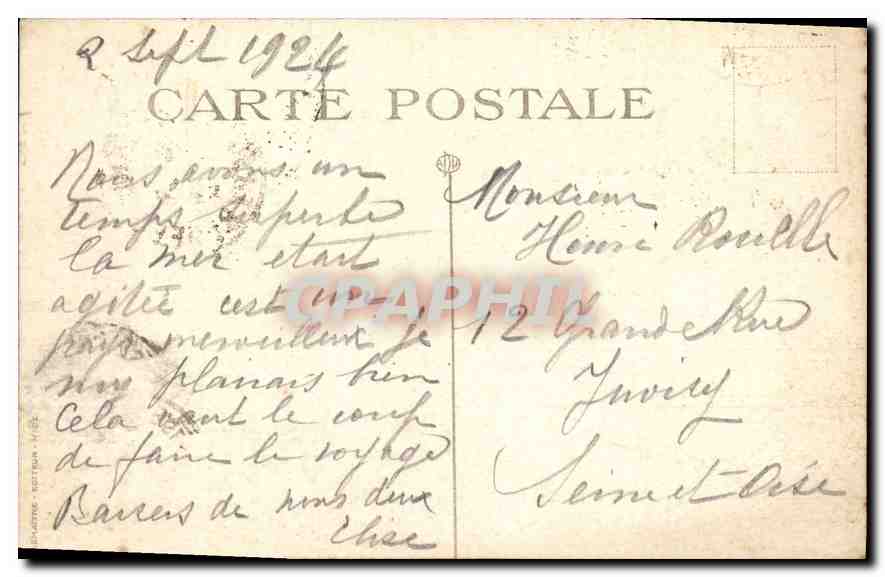 2 Sept 1924
CARTE POSTALE
Nous avons un
temps superbe
la mer etait
agitée c'est un
pays merveilleux je
plairais bien
Cela vaut le coup
de faire le voyage
Baisers de nous deux
Elise
Monsieur
Henri Rouelle
12 Grande Rue
Juvisy
Seine et Oise
CRAPHIL